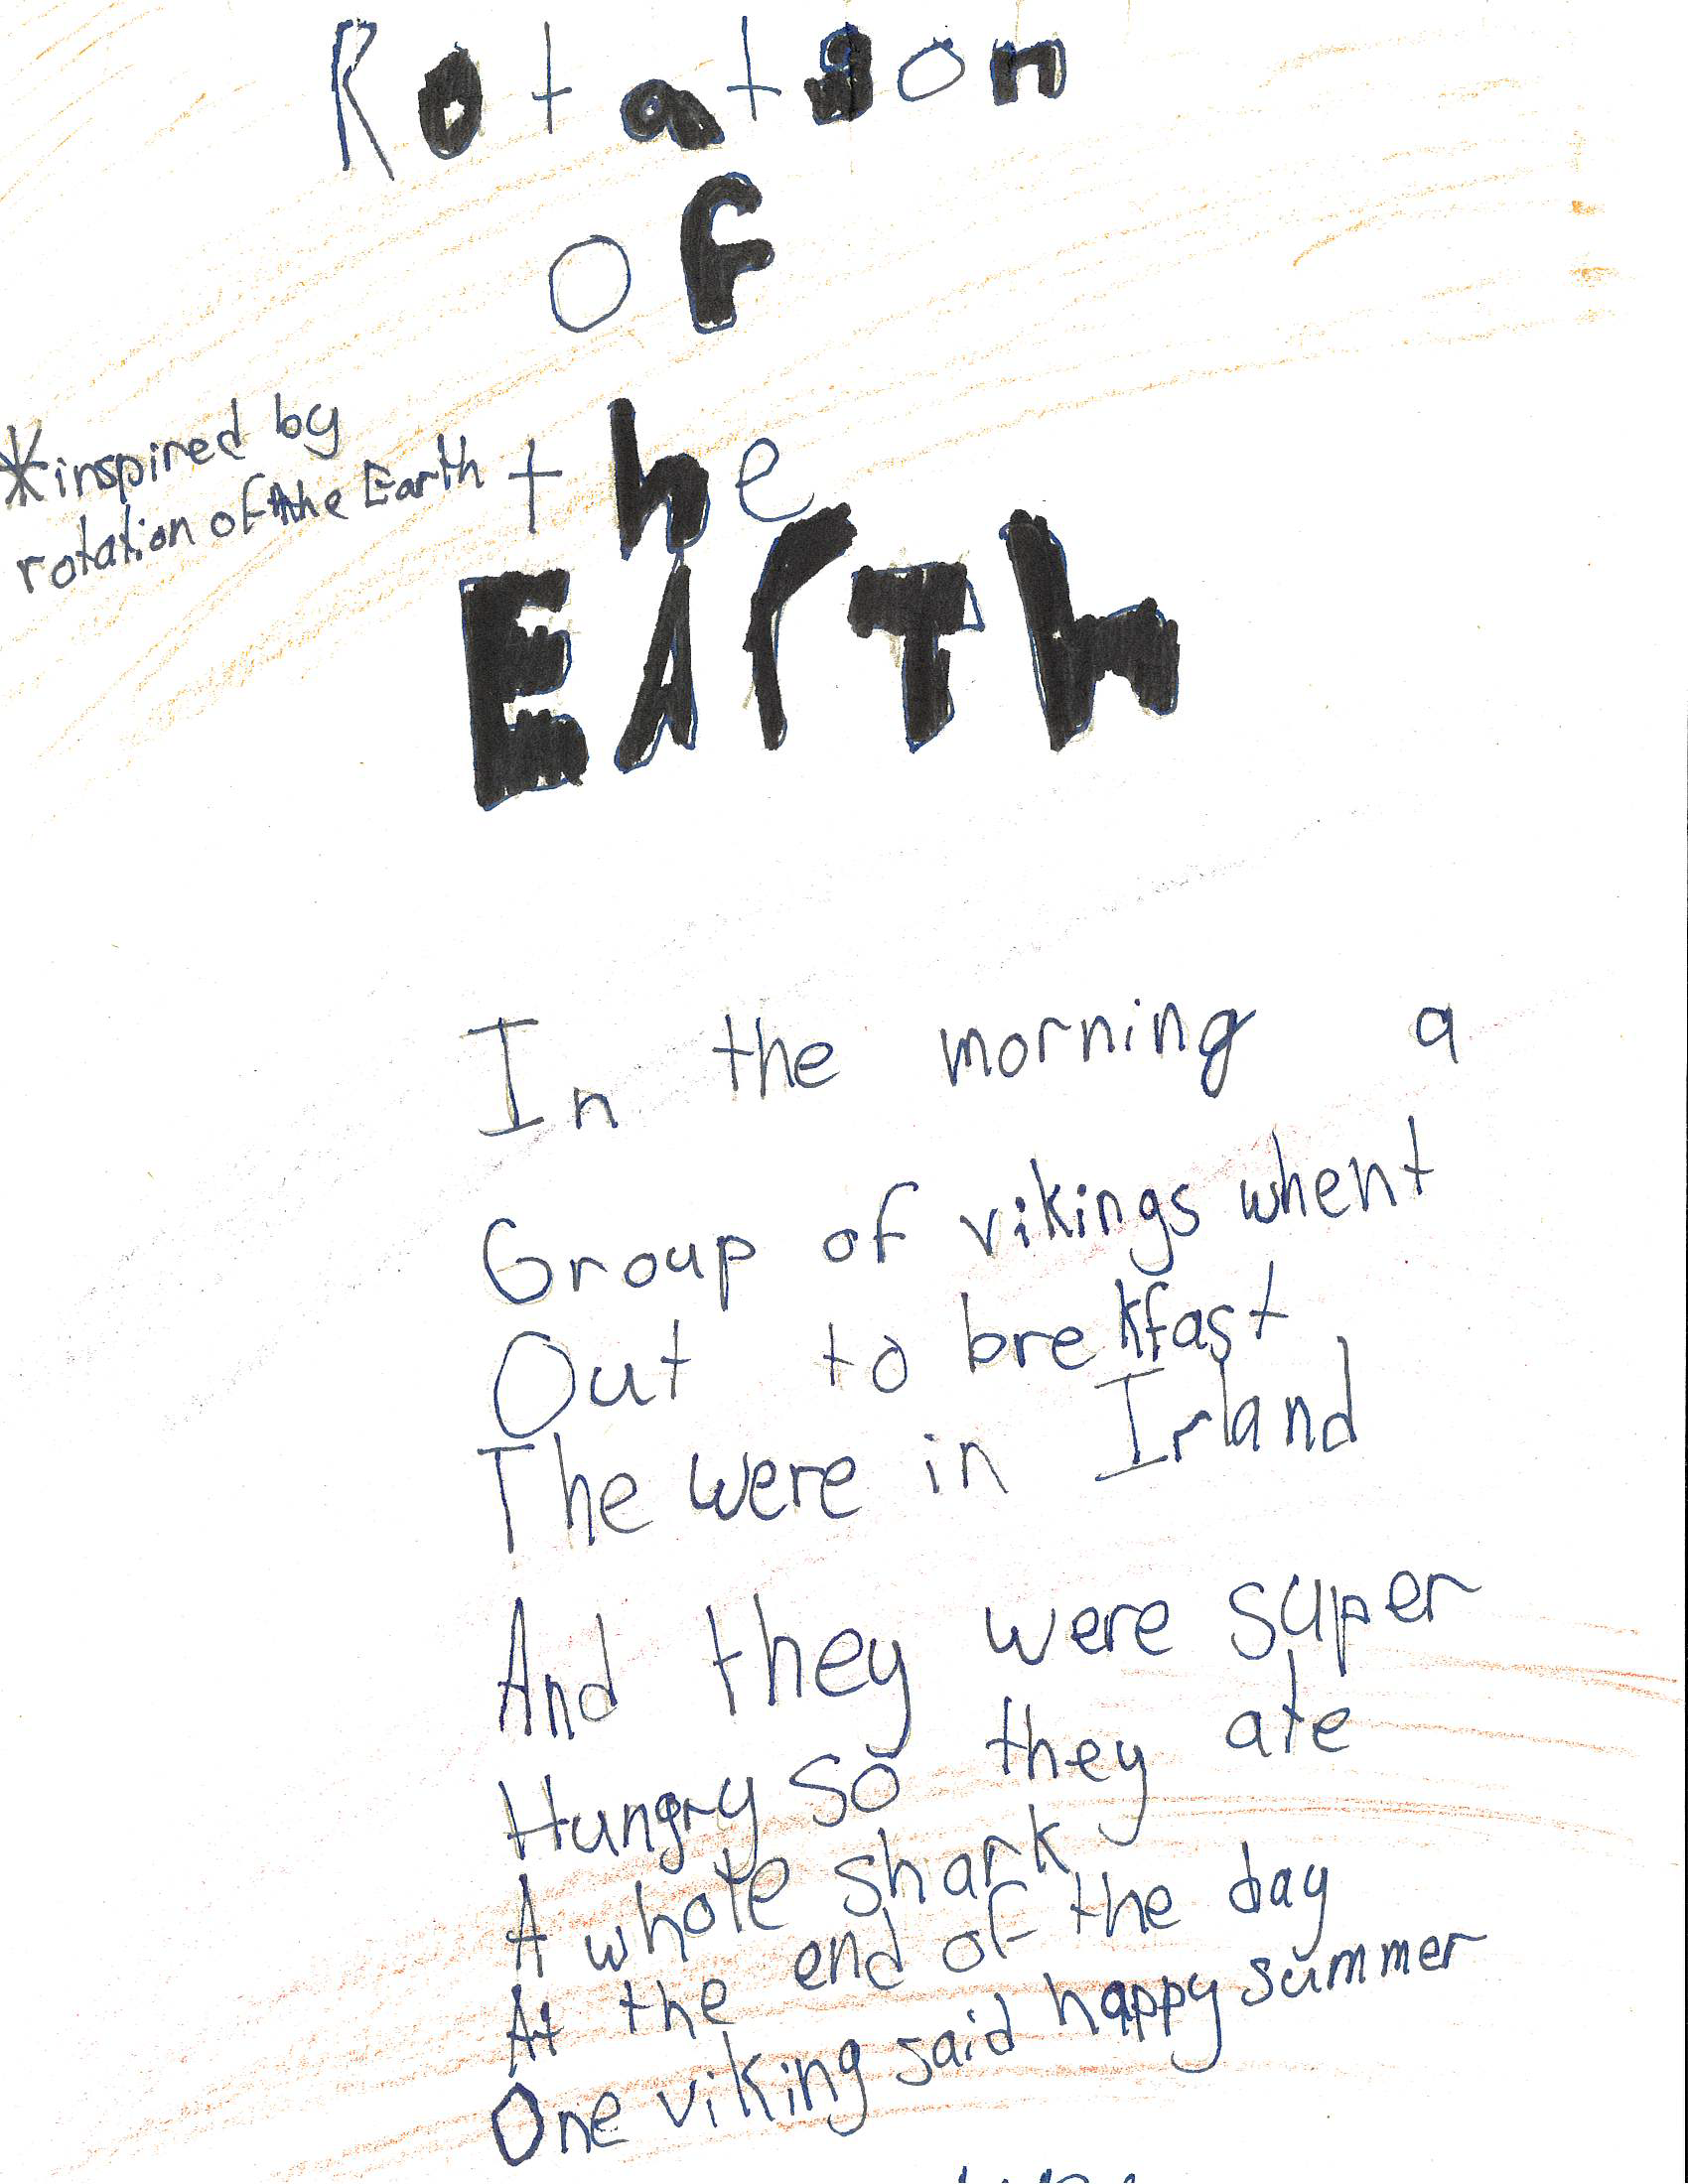 Rotation
of
the
EArTh
*inspired by
rotation of the Earth
In the morning a
Group of vikings whent
Out to brekfast
The were in Irland
And they were super
Hungry so they ate
A whole shark
At the end of the day
One viking said happy summer